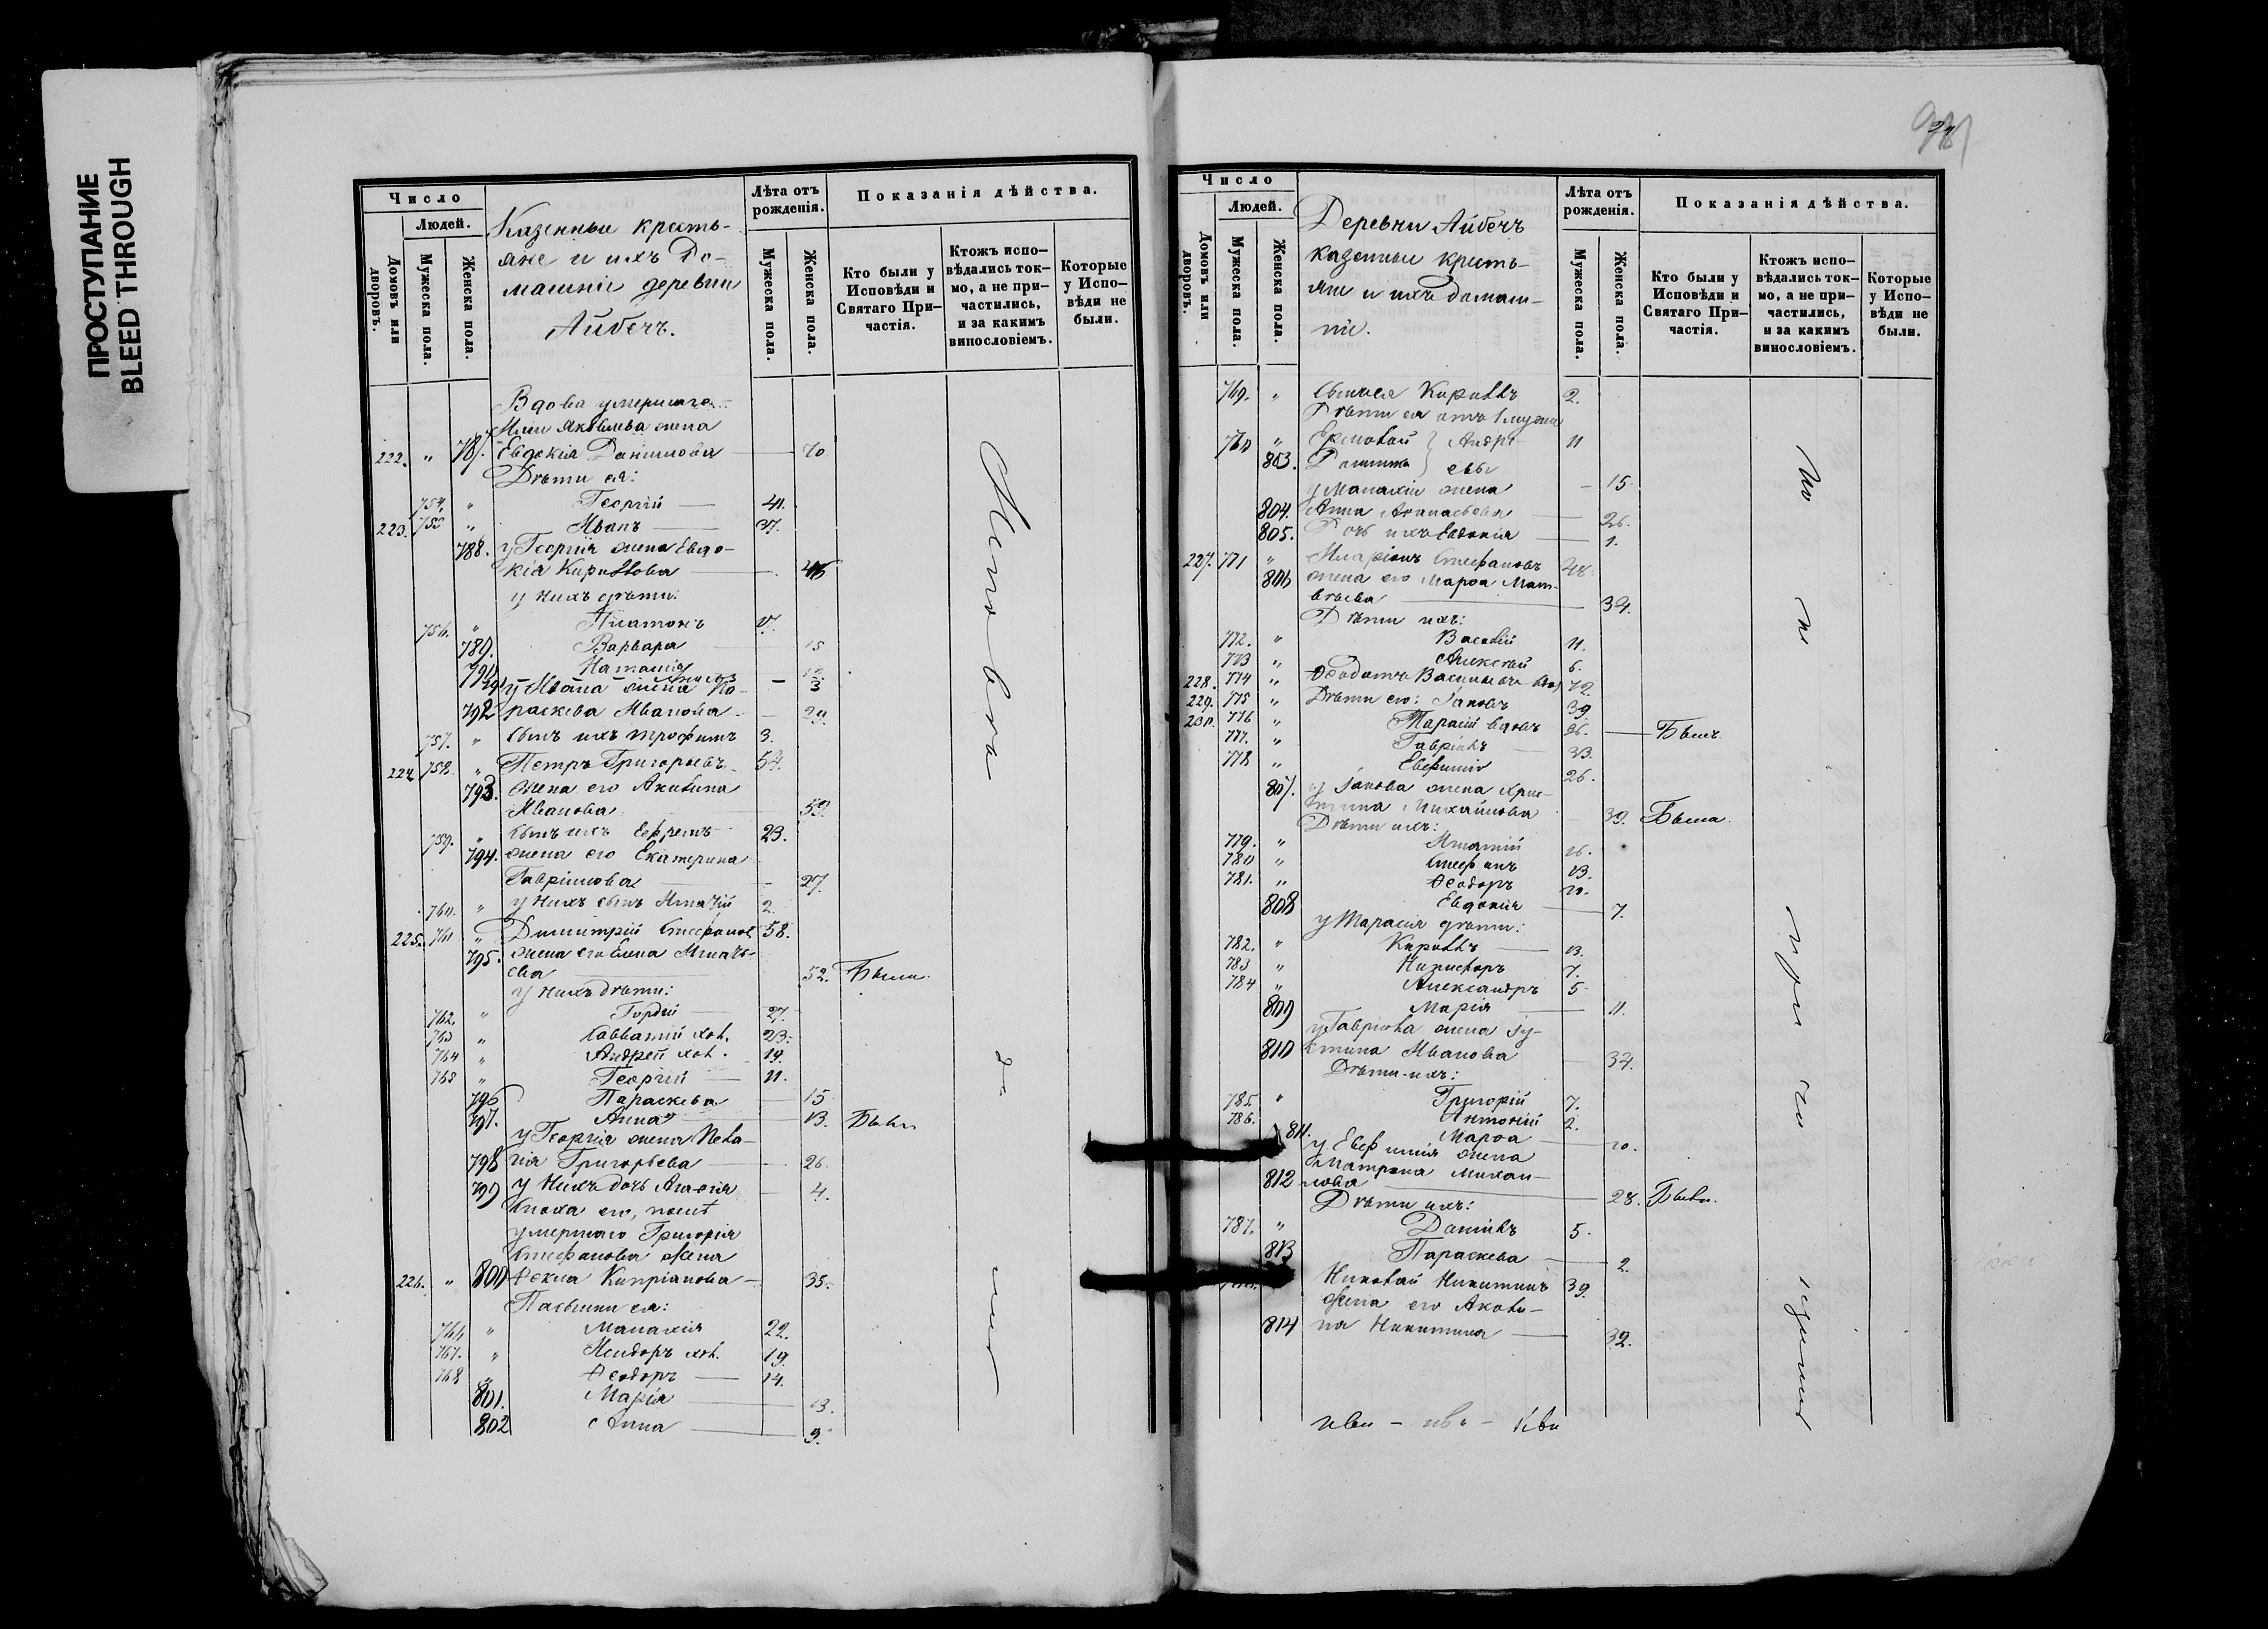 ПРОСТУПАНИЕ
BLEED THROUGH
Число
Людей.
Домовъ или дворовъ.
Мужеска пола.
Женска пола.
Казенные кресть-
яне и ихъ до-
машніе деревни
Айбечъ.
Лѣта отъ рожденія.
Мужеска пола.
Женска пола.
Показанія дѣйства.
Кто были у Исповѣди и Святаго При-частія.
Ктожъ испо-вѣдались ток-мо, а не при-частились, и за какимъ винословіемъ.
Которые у Испо-вѣди не были.
Вдова умершаго
Яковлева жена
222. " 787. Евдокія Данилова 70
Дѣти ея:
754. " Георгій 41.
223. 755 " Иванъ 37.
788. у Георгія жена Евдо-
кія Кириллова
у нихъ дѣти:
756. " Платонъ
789. Варвара 15
790 Наталія 12.
791 у Ивана жена Па- 3
792 раскева Иванова 29.
757. " сынъ ихъ Трофимъ 3.
224 758. " Петръ Григорьевъ 54.
793. жена его Акилина
Иванова 59.
759. " сынъ ихъ Ефремъ 23.
794. жена его Екатерина
Гавріилова 27.
760. " у нихъ сынъ Игнатій 2.
225. 761 " Димитрій Стефановъ 58.
795. жена его Елена Игнать-
ева 52. Были.
у нихъ дѣти:
762. " Гордій 27.
763 " Савватій хол. 23.
764 " Андрей хол. 19.
765 " Георгій 11.
796 Параскева 15
797. Анна 13. Были
у Георгія жена Пела-
798 гія Григорьева 26.
799 у нихъ дочь Агафія 4.
Сноха его, послѣ
умершаго Григорія
Стефанова жена
226. " 800 Ѳекла Кипріанова 35.
Пасынки ея:
766 " Малахія 22.
767. " Исидоръ хол. 19.
768 " Ѳеодоръ 14.
801. Марія 13.
802 Анна 9.
Число
Людей.
Домовъ или дворовъ.
Мужеска пола.
Женска пола.
Деревни Айбечъ
казенные кресть-
яне и ихъ домаш-
ніе.
Лѣта отъ рожденія.
Мужеска пола.
Женска пола.
Показанія дѣйства.
Кто были у Исповѣди и Святаго При-частія.
Ктожъ испо-вѣдались ток-мо, а не при-частились, и за какимъ винословіемъ.
Которые у Испо-вѣди не были.
769. " сынъ ея Кириллъ 2.
Дѣти ея отъ 1 мужа
770 " Ермолай } Андре- 11
803. } евы 15
у Малахіи жена
804. Анна Аѳанасьева 26.
805. Дочь ихъ Евдокія 1.
227. 771 " Иларіонъ Стефановъ 48
806 жена его Марѳа Мат-
вѣева 34.
Дѣти ихъ:
772. " Василій 11.
773 " Алексѣй 6.
228. 774 " Ѳеодотъ Васильевъ вд. 72
229. 775 " Дѣти его: Іаковъ 39.
230. 776 " Тарасій вдовъ 36. Былъ.
777. " Гавріилъ 33.
778 " Евфимій 26.
807. у Іакова жена Хрис-
тина Михайлова 39. Была.
Дѣти ихъ:
779. " Игнатій 16.
780 " Стефанъ 13.
781. " Ѳеодоръ 10.
808 Евдокія 7.
у Тарасія дѣти:
782. " Кириллъ 13.
783 " Никифоръ 7.
784 " Александръ 5.
809 Марія 11.
у Гавріила жена Іу-
810 стина Иванова 34.
Дѣти ихъ:
785. " Григорій 7.
786. Антоній 2.
811. Марѳа 10.
у Евфимія жена
Матрона Михаи-
812 лова 28. Были.
Дѣти ихъ:
787. " Даніилъ 5.
813 Параскева 2.
Николай Никитинъ 39.
жена его Акили-
814 на Никитина 32.